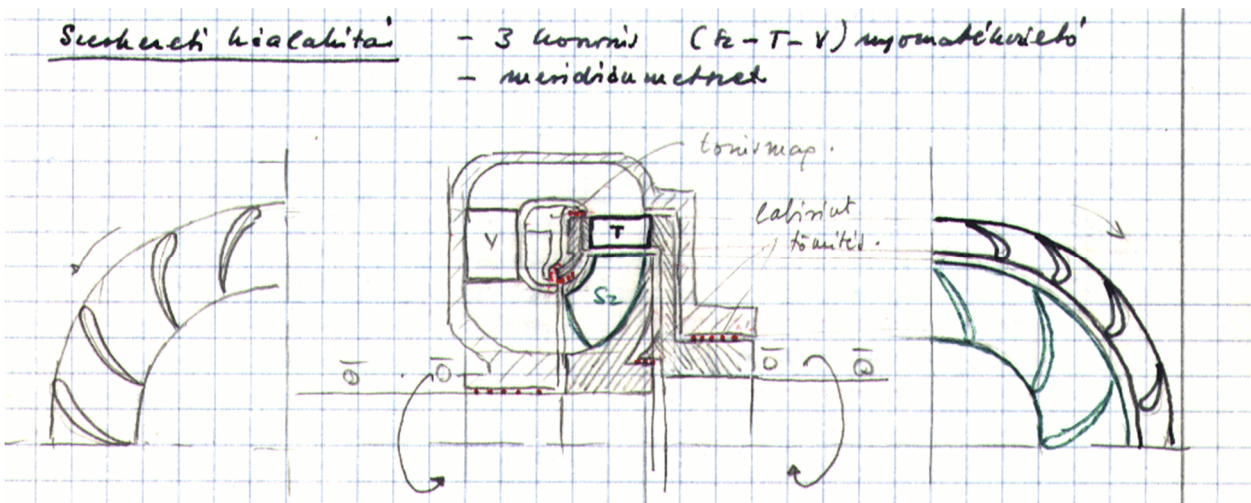 Szerkezeti kialakítás - 3 konvis (Sz-T-V) nyomatékváltó
- meridiánmetszet
tórusmag.
labirint
tömítés.
V
T
Sz
Ō Ō Ō Ō